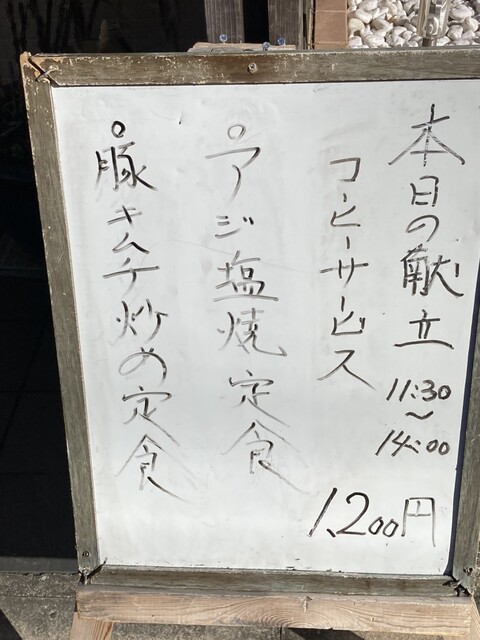 本日の献立 11:30〜14:00
コーヒーサービス
1,200円
○アジ塩焼定食
○豚キムチ炒め定食